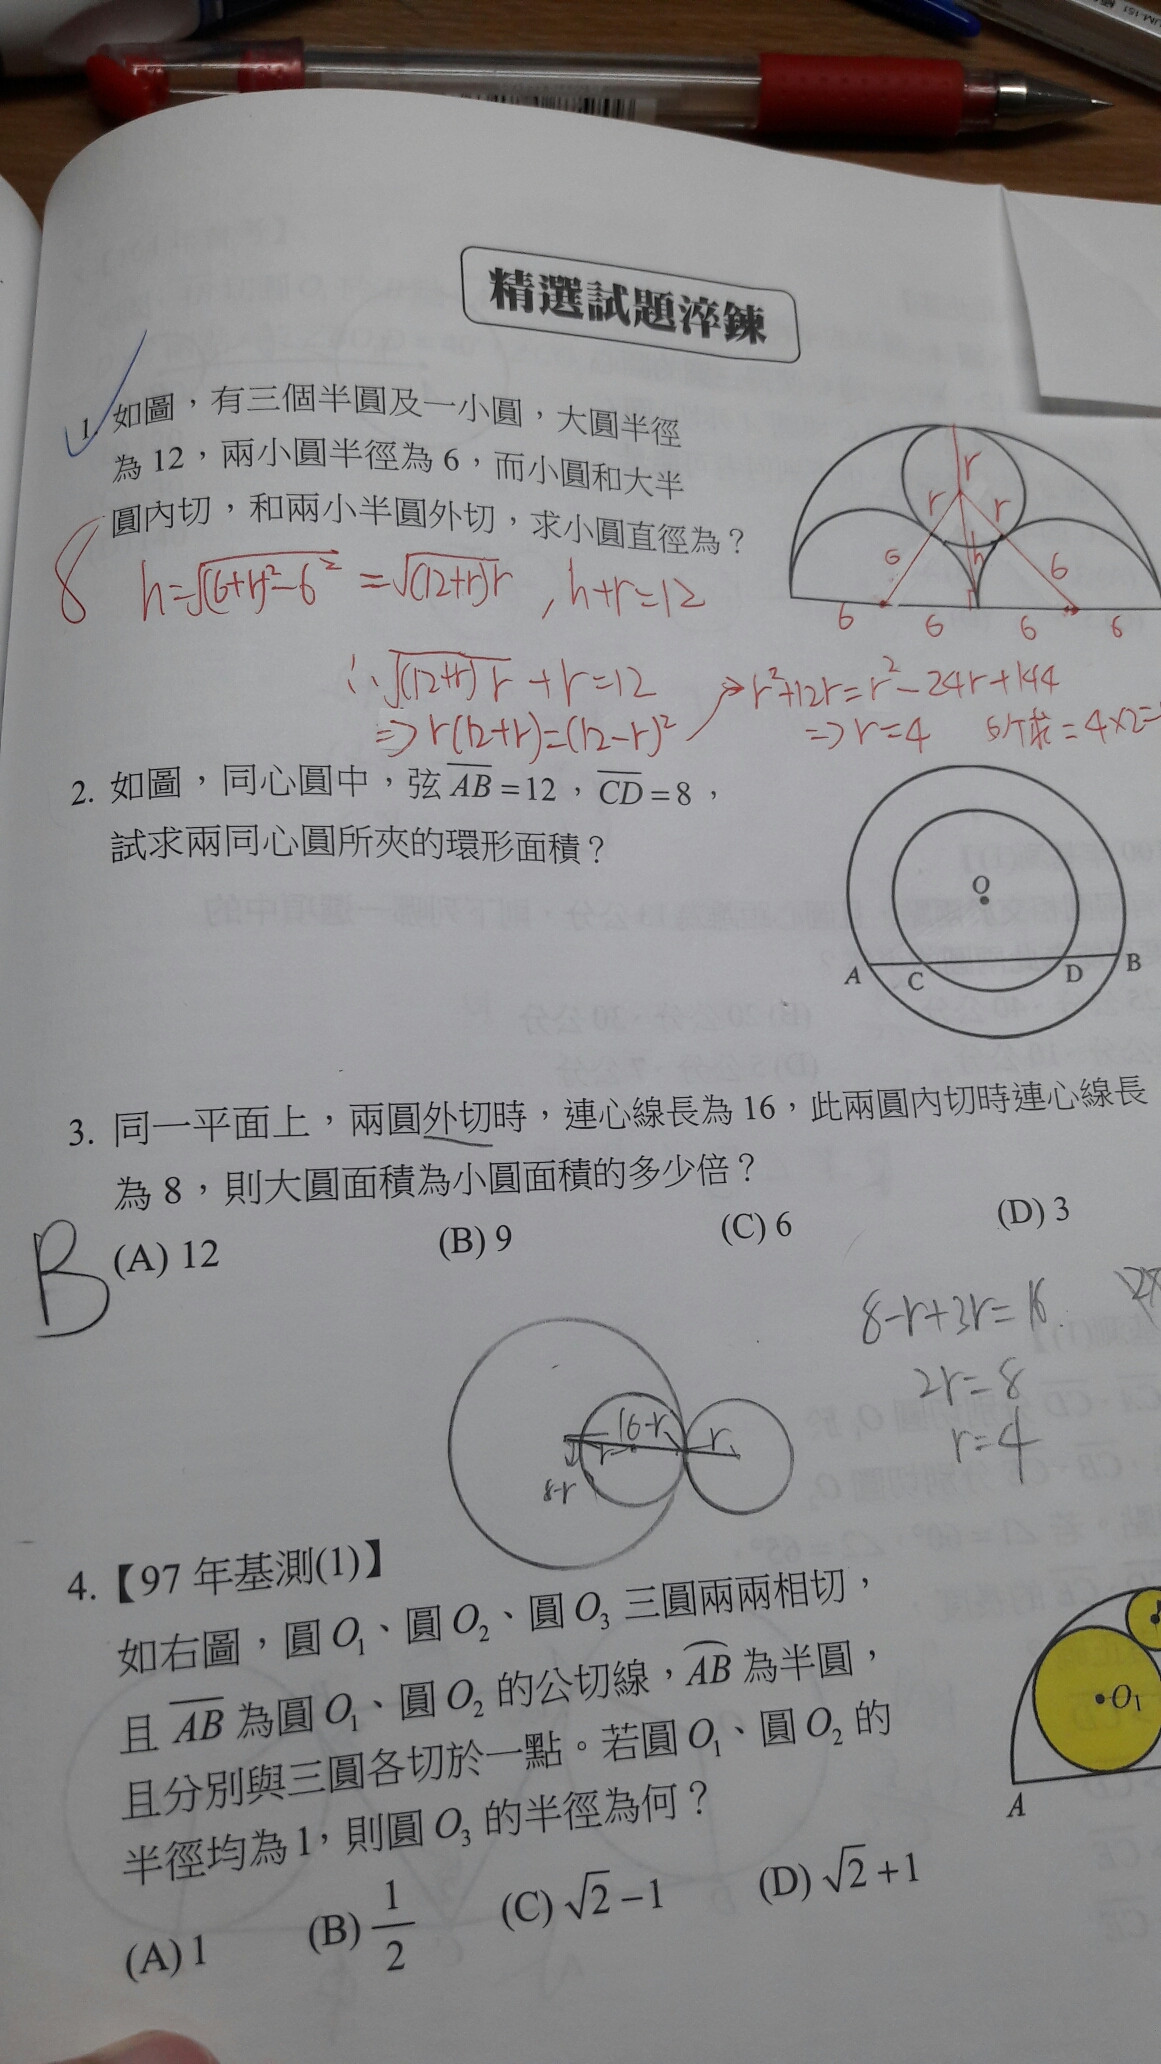 精選試題淬鍊
1. 如圖，有三個半圓及一小圓，大圓半徑
為 12，兩小圓半徑為 6，而小圓和大半
圓內切，和兩小半圓外切，求小圓直徑為？
8
h=√(6+r)²-6² = √(12+r)r , h+r=12
∴ √(12+r)r + r=12
=> r(12+r)=(12-r)²
r²+12r=r²-24r+144
=> r=4 所求=4×2=
r
r r
6 h 6
6 6 6 6
2. 如圖，同心圓中，弦 AB = 12，CD = 8，
試求兩同心圓所夾的環形面積？
O
A C D B
3. 同一平面上，兩圓外切時，連心線長為 16，此兩圓內切時連心線長
為 8，則大圓面積為小圓面積的多少倍？
B
(A) 12 (B) 9 (C) 6 (D) 3
4.【97 年基測(1)】
如右圖，圓 O₁、圓 O₂、圓 O₃ 三圓兩兩相切，
且 AB 為圓 O₁、圓 O₂ 的公切線，AB 為半圓，
且分別與三圓各切於一點。若圓 O₁、圓 O₂ 的
半徑均為 1，則圓 O₃ 的半徑為何？
(A) 1 (B) 1/2 (C) √2 −1 (D) √2 +1
O₁
A